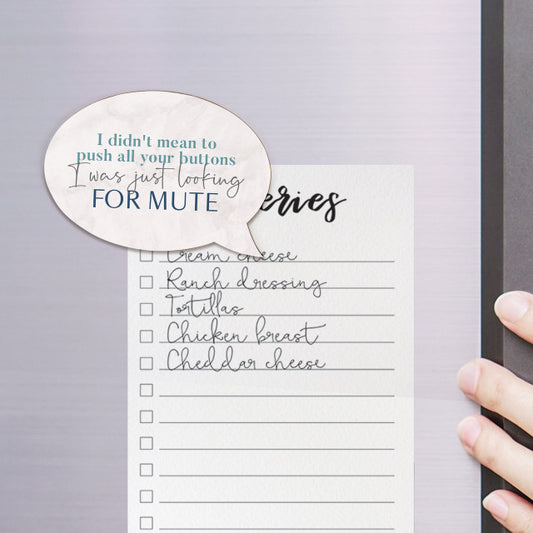 I didn't mean to
push all your buttons
I was just looking
FOR MUTE
eries
Cream cheese
Ranch dressing
Tortillas
Chicken breast
Cheddar cheese